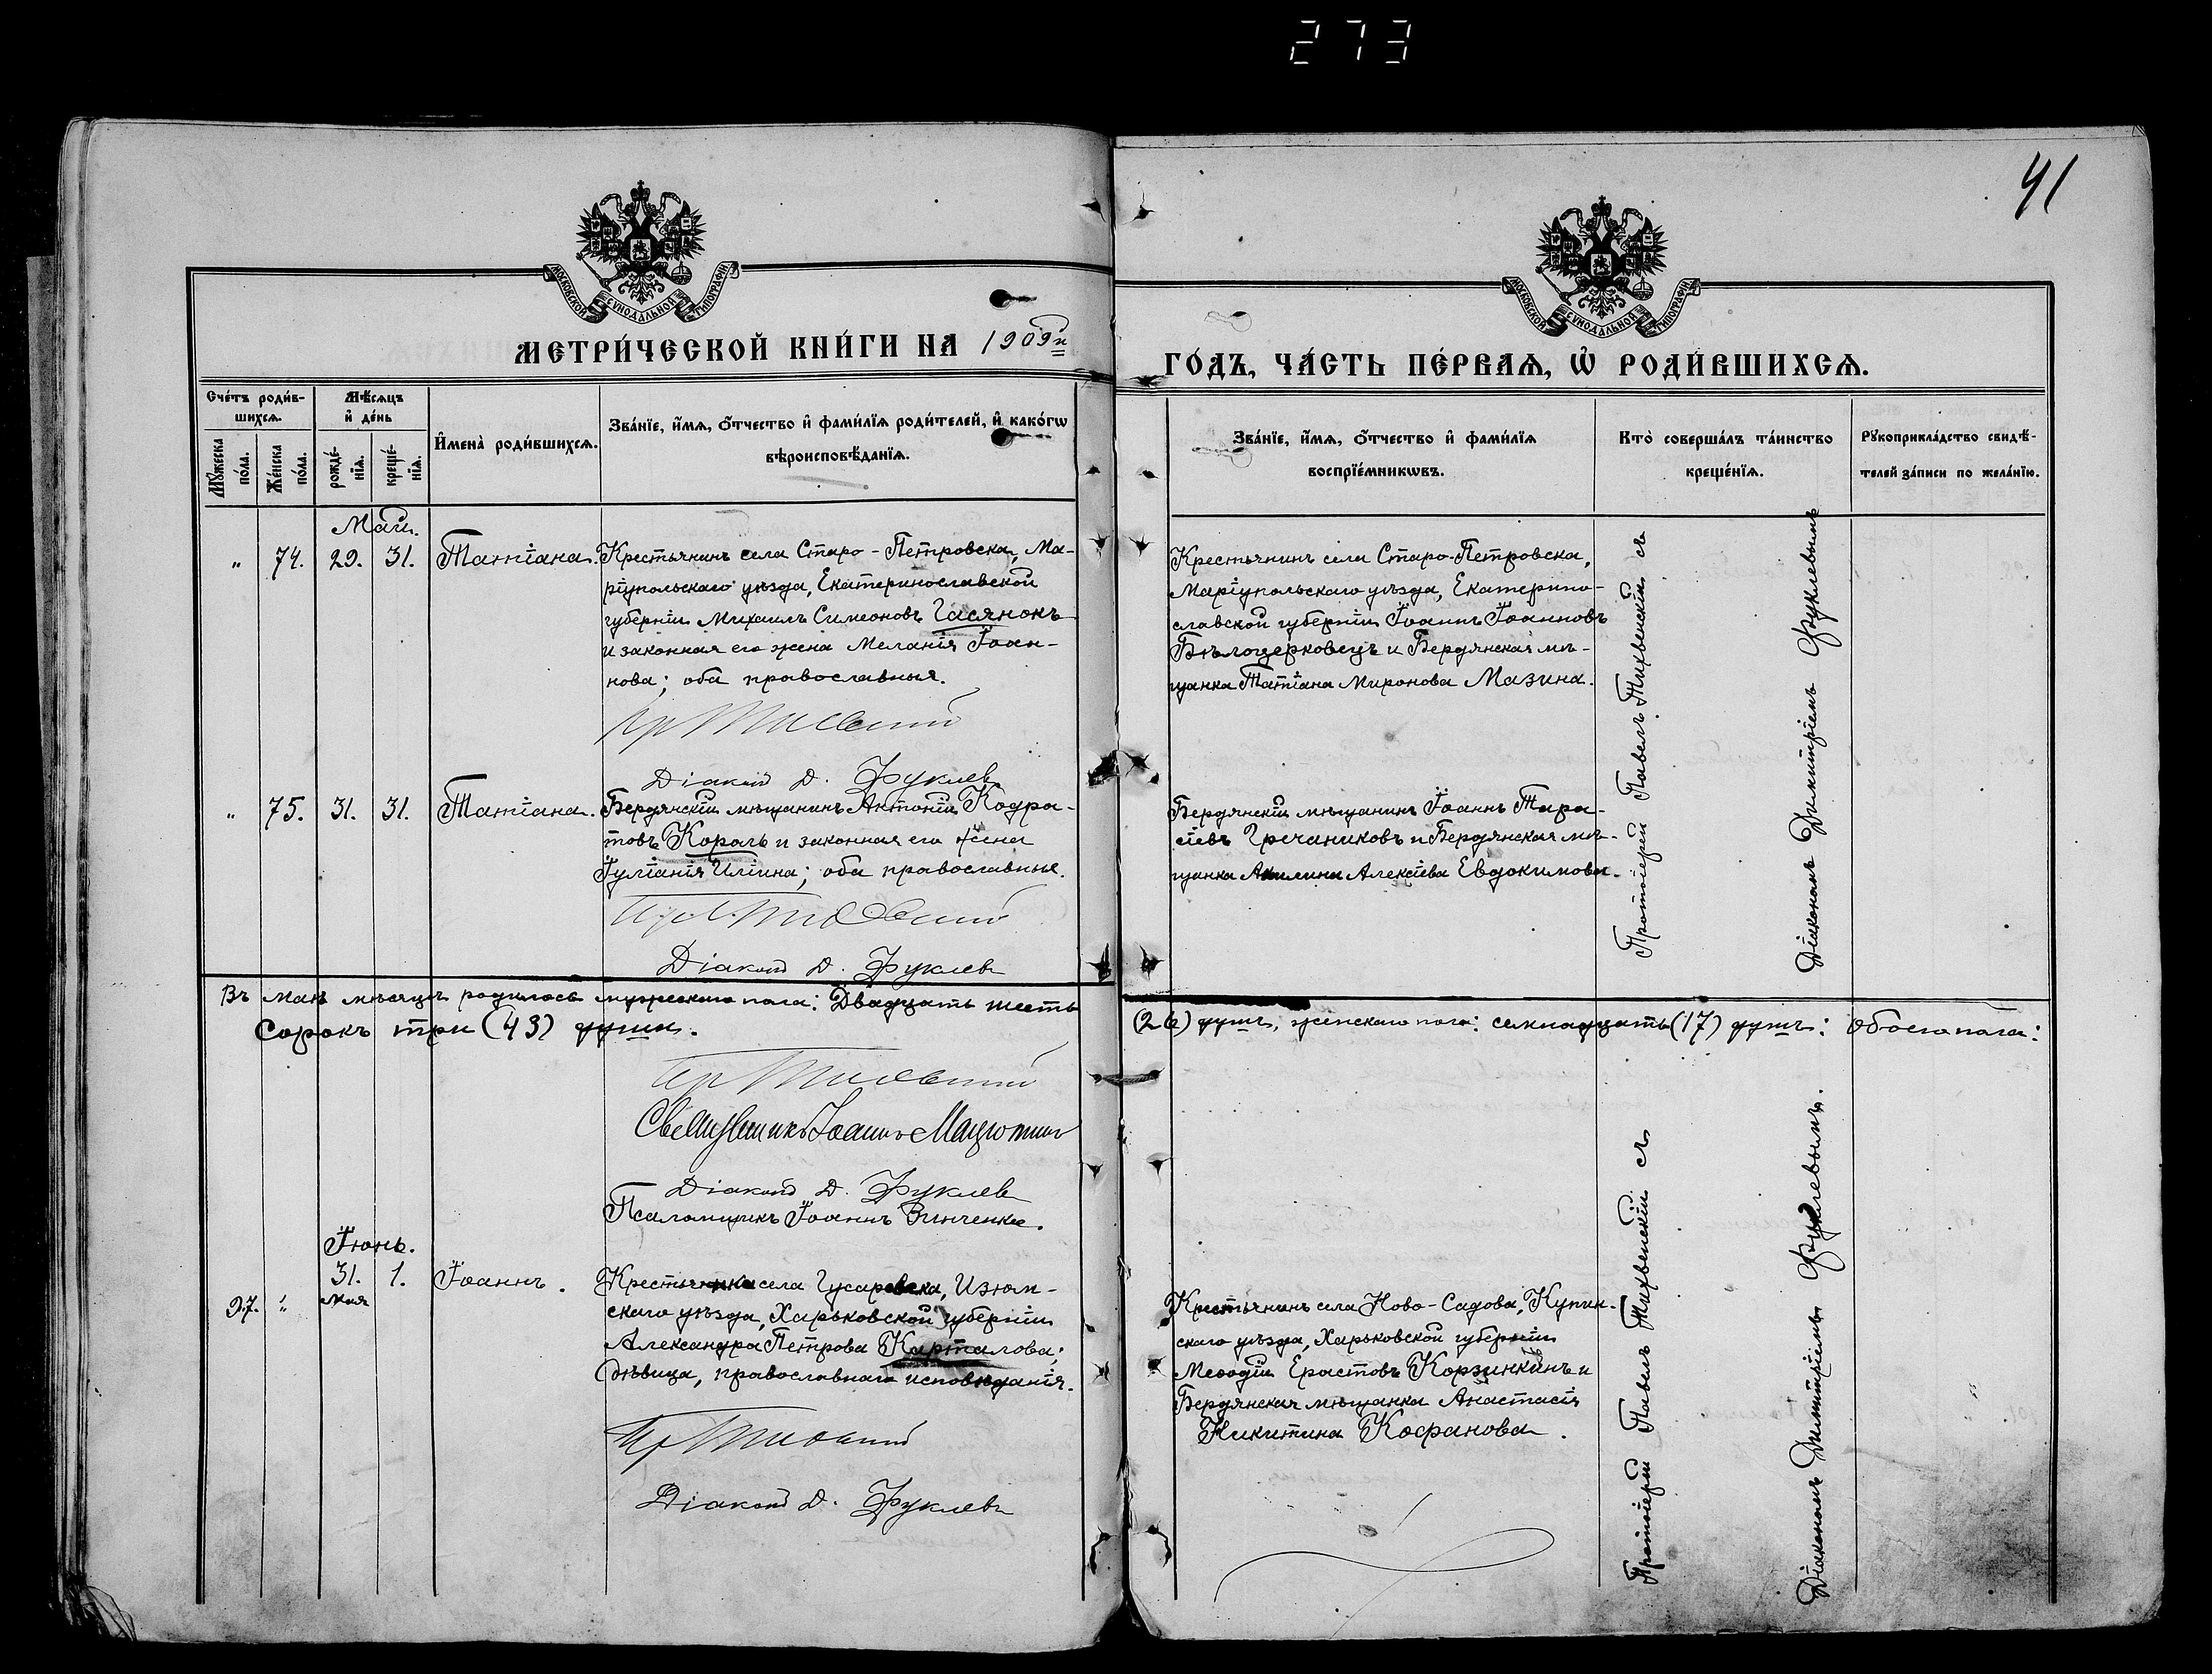 273
41
МОСКОВСКОЙ СѴНОДАЛЬНОЙ ТИПОГРАФІИ
МОСКОВСКОЙ СѴНОДАЛЬНОЙ ТИПОГРАФІИ
МЕТРИ́ЧЕСКОЙ КНИ́ГИ НА 1909й
ГО́ДЪ, ЧА́СТЬ ПЕ́РВАѦ, Ѡ РОДИ́ВШИХСѦ.
Сче́тъ роди́в-
шихсѧ.
Мꙋ́жеска
по́ла.
Же́нска
по́ла.
Мѣ́сѧцъ
и҆ де́нь
рожде́-
нїѧ.
креще́-
нїѧ.
И҆мена̀ роди́вшихсѧ.
Зва́нїе, и҆́мѧ, ѻ҆́тчество и҆ фами́лїѧ роди́телей, и҆ како́гѡ
вѣроисповѣ́данїѧ.
Зва́нїе, и҆́мѧ, ѻ҆́тчество и҆ фами́лїѧ
воспрїе́мникѡвъ.
Кто̀ соверша́лъ та́инство
креще́нїѧ.
Рꙋкоприкла́дство свидѣ́-
телей за́писи по жела́нїю.
Май.
„ 74. 29. 31. Татіана.
Крестьянинъ села Старо-Петровска, Ма-
ріупольскаго уѣзда, Екатеринославской
губерніи Михаилъ Симеоновъ Гасянокъ
и законная его жена Меланія Іоан-
нова; оба православныя.
Діаконъ Д. Фуклевъ
Крестьянинъ села Старо-Петровска,
Маріупольскаго уѣзда, Екатерино-
славской губерніи Іоаннъ Іоанновъ
Бѣлоцерковецъ и Бердянская мѣ-
щанка Татіана Миронова Мазина.
Протоіерей Павелъ Тихвенскій съ
Діакономъ Димитріемъ Фуклевымъ
„ 75. 31. 31. Татіана.
Бердянскій мѣщанинъ Антоній Кодра-
товъ Король и законная его жена
Іуліанія Иліина; оба православныя.
Діаконъ Д. Фуклевъ
Бердянскій мѣщанинъ Іоаннъ Тара-
сіевъ Гречаниковъ и Бердянская мѣ-
щанка Акилина Алексіева Евдокимова.
Въ маѣ мѣсяцѣ родилось мужескаго пола: Двадцать шесть
(26) душъ, женскаго пола: семнадцать (17) душъ: обоего пола:
Сорокъ три (43) души.
Священникъ Іоаннъ
Діаконъ Д. Фуклевъ
Псаломщикъ Іоаннъ Зинченко.
Іюнь.
97. „ 31. 1. Іоаннъ.
Мая
Крестьянка села Гусаровка, Изюм-
скаго уѣзда, Харьковской губерніи
Александра Петрова Карталова;
дѣвица, православнаго исповѣданія.
Діаконъ Д. Фуклевъ
Крестьянинъ села Ново-Садова, Купин-
скаго уѣзда, Харьковской губерніи
Меѳодій Ерастовъ Корзинкинъ и
Бердянская мѣщанка Анастасія
Никитина Кофанова.
Протоіерей Павелъ Тихвенскій съ
Діакономъ Димитріемъ Фуклевымъ.